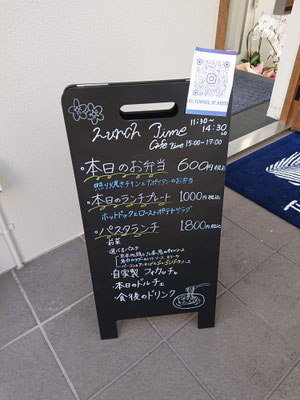 Lunch Time
11:30～14:30 LO
Cafe Time 15:00-17:00
・本日のお弁当 600円税込
照り焼きチキンとナポリタンのお弁当
・本日のランチプレート 1000円税込
ホットドッグとローストポテトサラダ
・パスタランチ 1800円税込
・前菜
・選べるパスタ
・自家製 フォカッチャ
・本日のドルチェ
・食後のドリンク